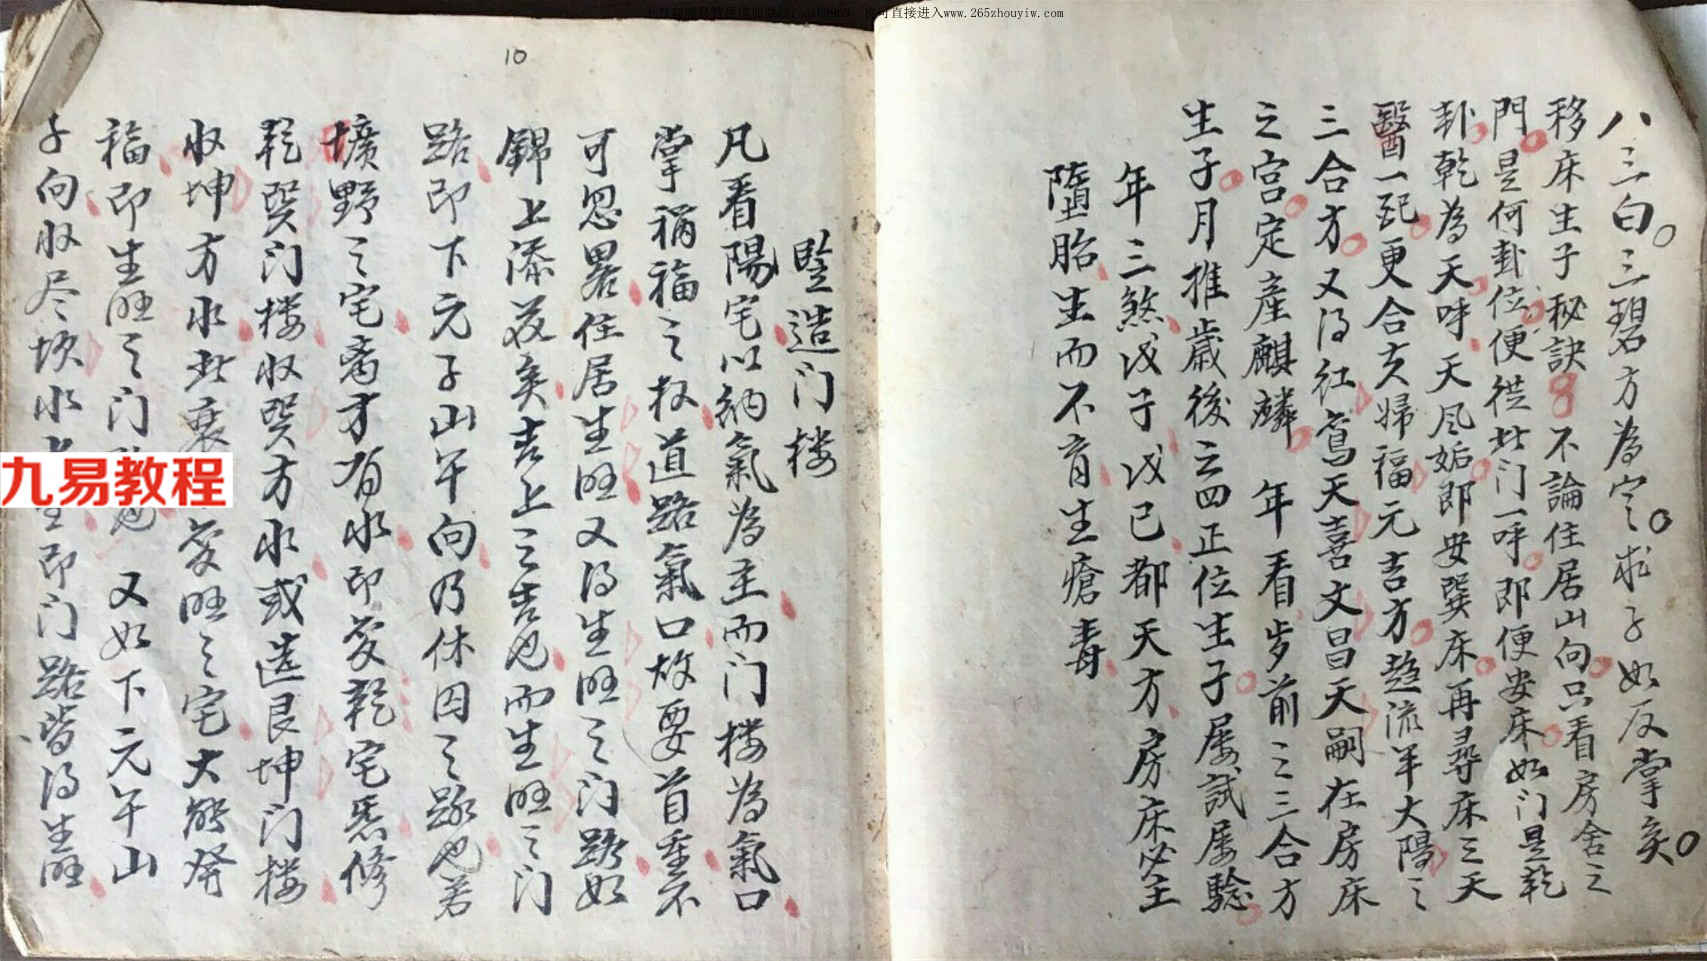 可直接进入www.265zhouyiw.com
八三白。三碧方為定。求子如反掌矣。
移床生子秘訣不論住居山向只看房舍之
門是何卦位便從此门一呼即便安床如门是乾
卦乾為天呼天风姤即安巽床再尋床三天
醫一配更合夫婦福元吉方趋流年大陽之
三合方又得红鸾天喜文昌天嗣在房床
之宫定產麒麟 年看岁前三三合方
生子月推歲後云四正位生子屡試屡騐
年三煞戊子戊已都天方房床必主
墮胎生而不育生瘡毒
10
竖造门楼
凡看陽宅以納氣為主而门楼為氣口
掌禍福之权道路氣口故要首重不
可忽畧住居生旺又得生旺之门路如
錦上添花矣吉上之吉也而生旺之门
路即下元子山午向乃休囚之路也若
壙野之宅离方有水即爱乾宅悉修
乾巽门楼收巽方水或造艮坤门楼
收坤方水北衰变旺之宅大發
福即生旺之门也 又如下元午山
子向收尽坎水即门路皆得生旺
九易教程